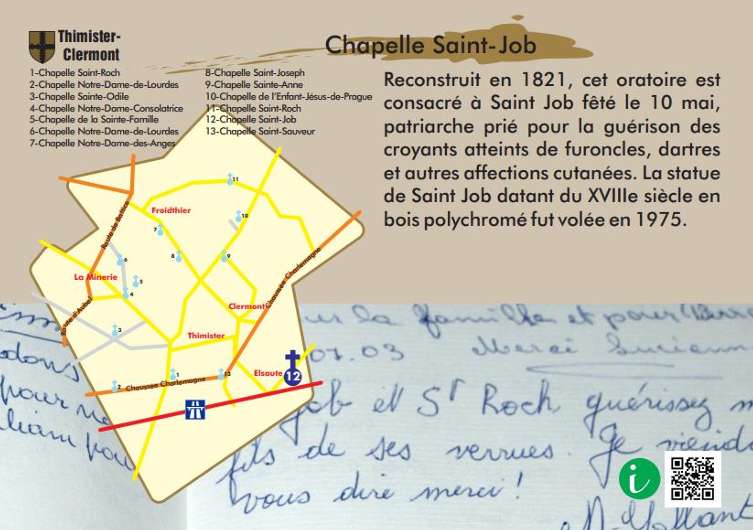 Thimister-
Clermont
1-Chapelle Saint-Roch
2-Chapelle Notre-Dame-de-Lourdes
3-Chapelle Sainte-Odile
4-Chapelle Notre-Dame-Consolatrice
5-Chapelle de la Sainte-Famille
6-Chapelle Notre-Dame-de-Lourdes
7-Chapelle Notre-Dame-des-Anges
8-Chapelle Saint-Joseph
9-Chapelle Sainte-Anne
10-Chapelle de l'Enfant-Jésus-de-Prague
11-Chapelle Saint-Roch
12-Chapelle Saint-Job
13-Chapelle Saint-Sauveur
Chapelle Saint-Job
Reconstruit en 1821, cet oratoire est
consacré à Saint Job fêté le 10 mai,
patriarche prié pour la guérison des
croyants atteints de furoncles, dartres
et autres affections cutanées. La statue
de Saint Job datant du XVIIIe siècle en
bois polychromé fut volée en 1975.
11
Froidthier
10
7
Route de Battice
8
9
6
La Minerie
5
4
Chaussée Charlemagne
Clermont
Route d'Aubel
3
Thimister
Elsaute
12
1
13
2
Chaussée Charlemagne
la famille et pour
07.03 Merci
pour
Job et St Roch guérissez
fils de ses verrues. Je
vous dire merci !
i